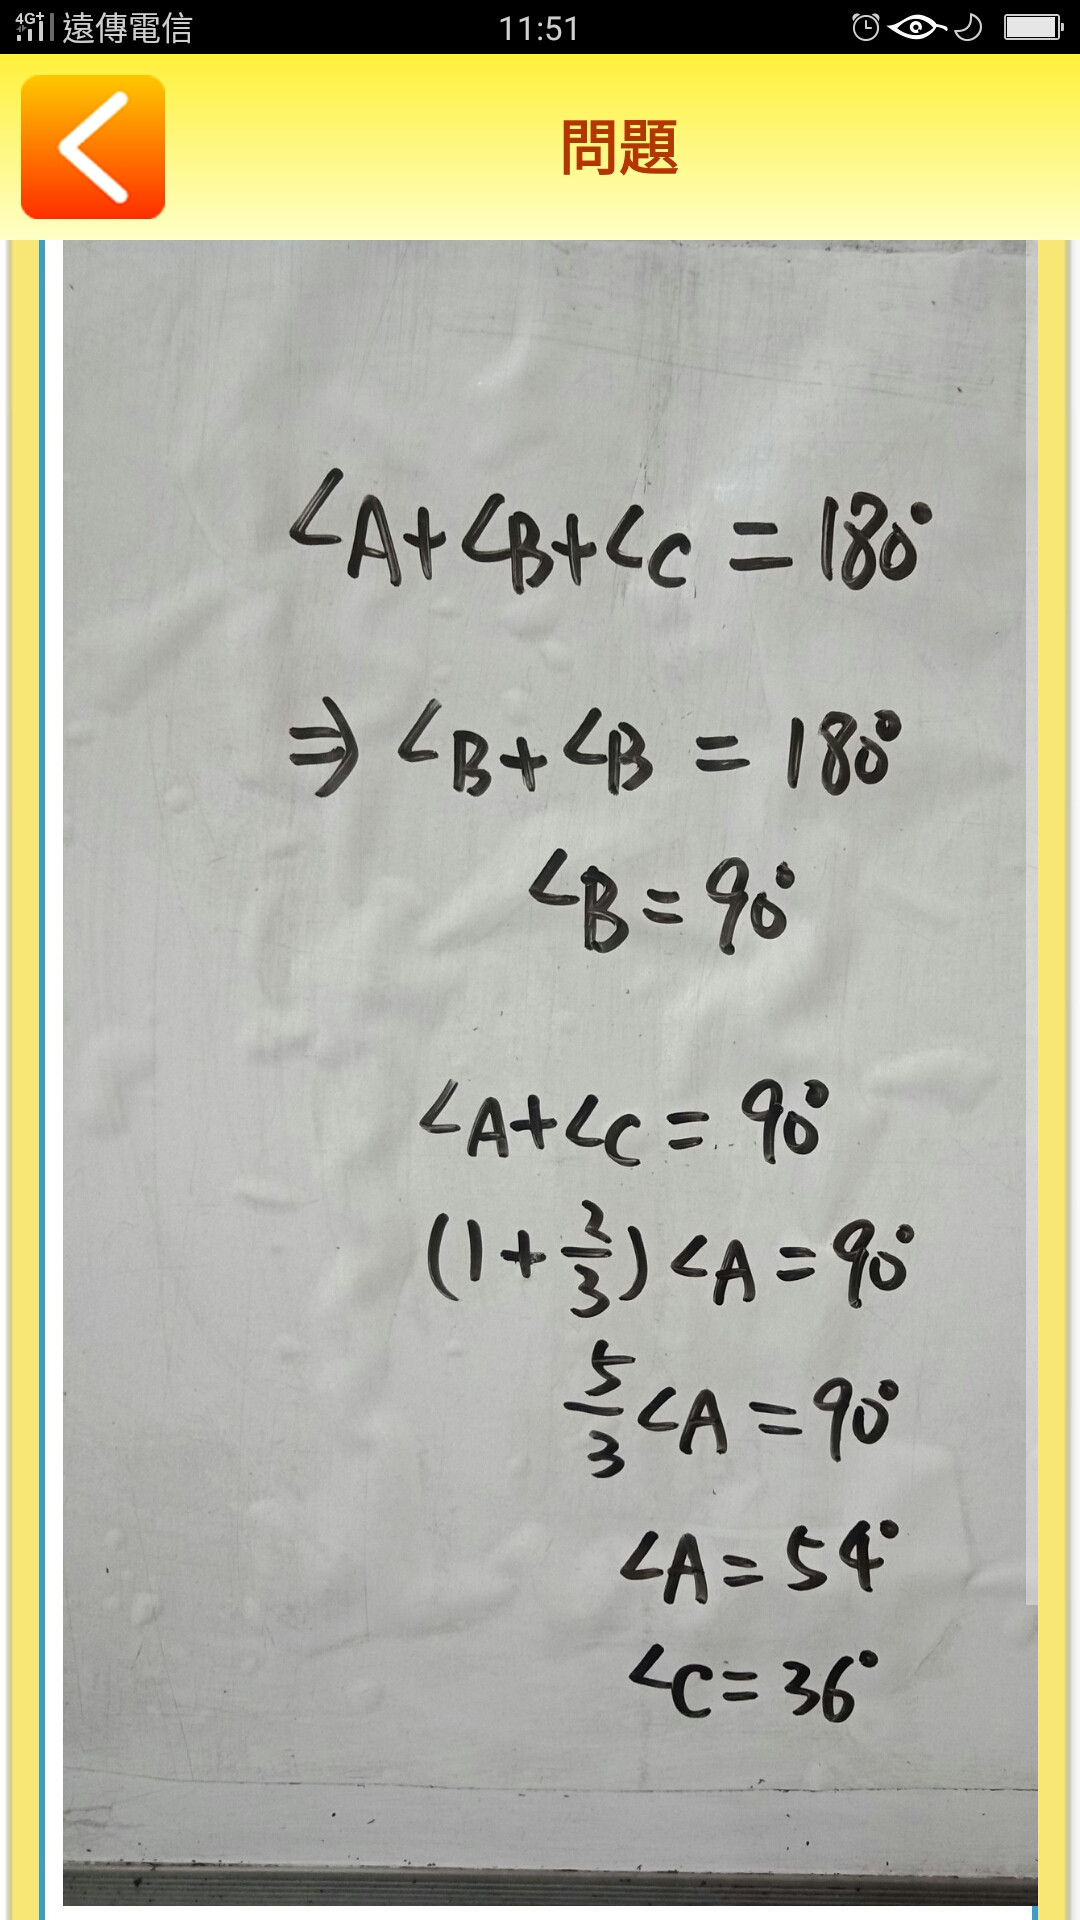 4G+ 遠傳電信 11:51
問題
∠A+∠B+∠C=180°
⇒ ∠B+∠B=180°
∠B=90°
∠A+∠C=90°
(1+2/3)∠A=90°
5/3∠A=90°
∠A=54°
∠C=36°